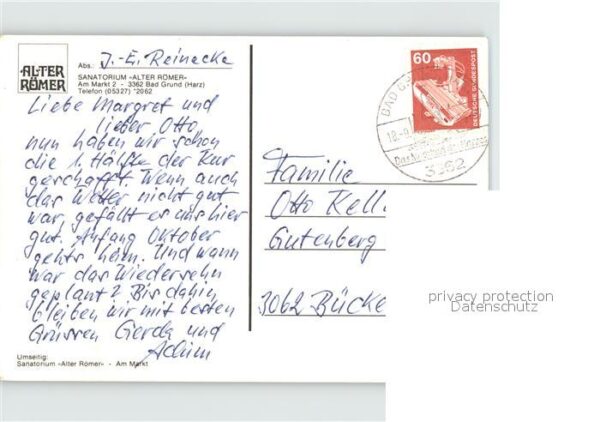 ALTER
RÖMER
Abs.: J.-E. Reinecke
SANATORIUM »ALTER RÖMER«
Am Markt 2 - 3362 Bad Grund (Harz)
Telefon (05327) *2062
Liebe Margret und
lieber Otto,
nun haben wir schon
die 1. Hälfte der Kur
geschafft. Wenn auch
das Wetter nicht gut
war, gefällt es uns hier
gut. Anfang Oktober
gehts heim. Und wann
war das Wiedersehn
geplant? Bis dahin
bleiben wir mit besten
Grüssen Gerda und
Achim
Umseitig:
Sanatorium »Alter Römer« - Am Markt
60
DEUTSCHE BUNDESPOST
BAD
18.-9.
3362
Familie
Otto Kell
Gutenberg
3062 Bücke
privacy protection
Datenschutz